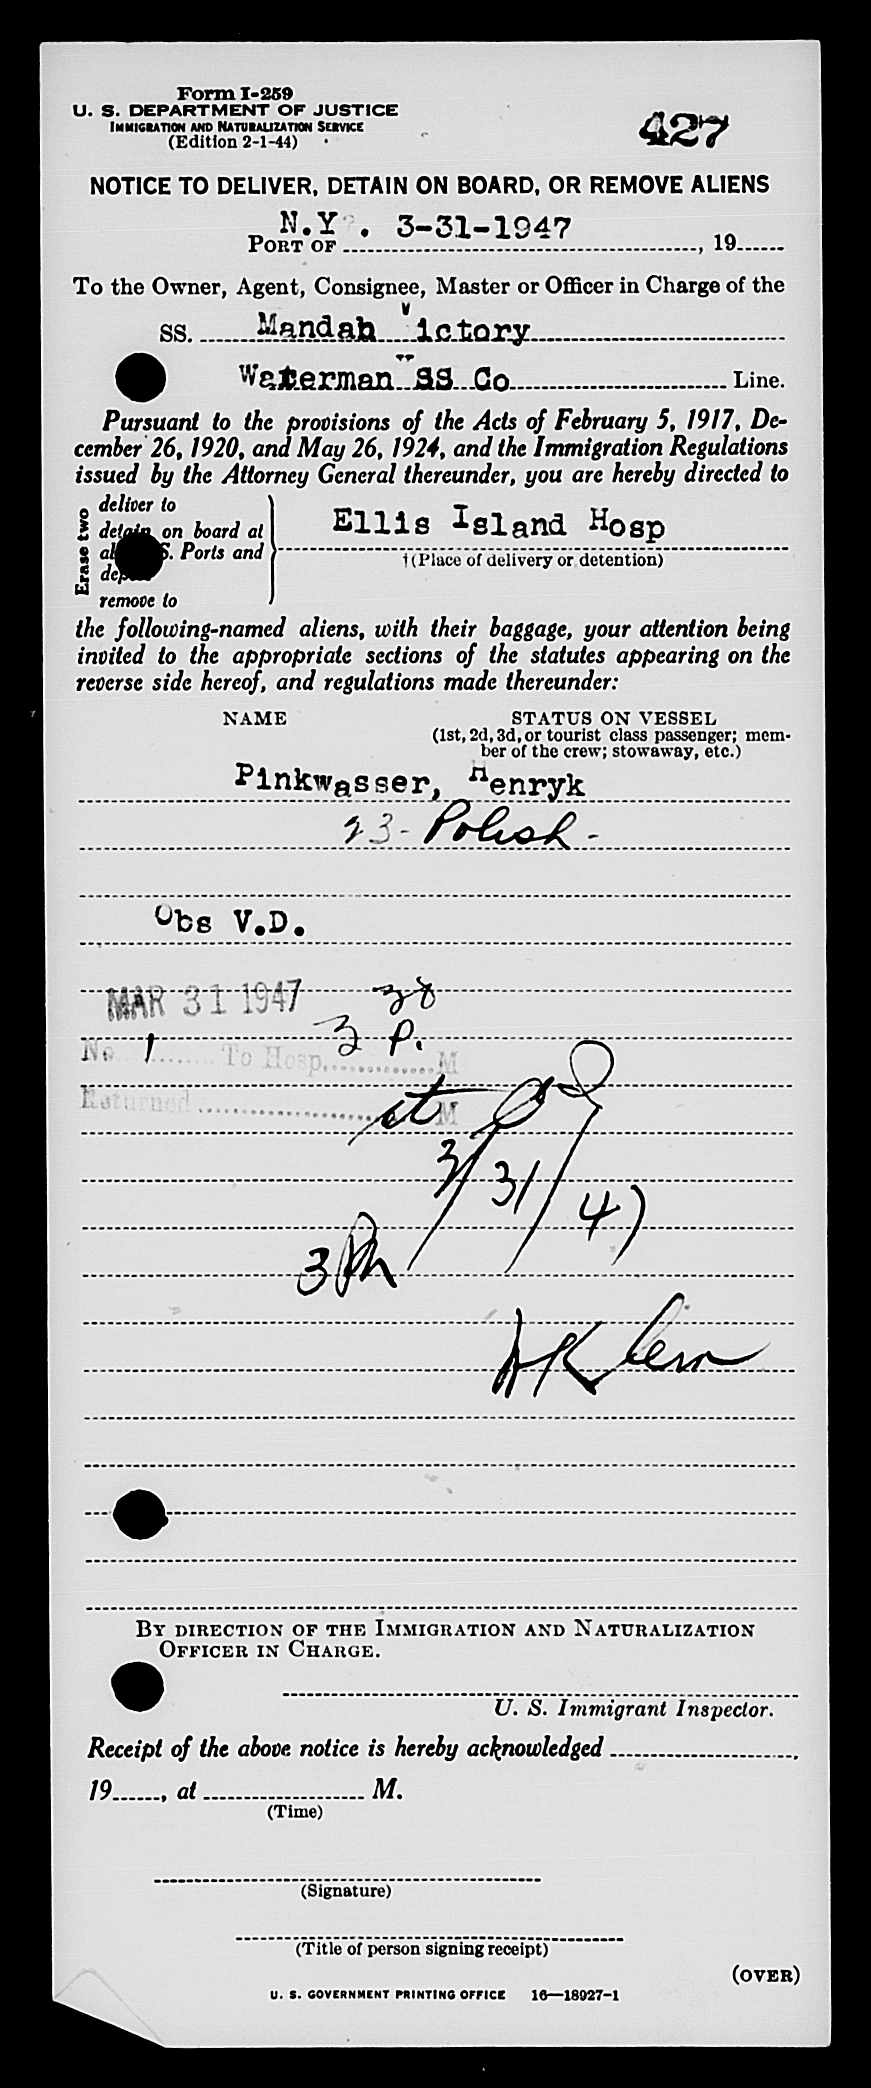 Form I-259
U. S. DEPARTMENT OF JUSTICE
IMMIGRATION AND NATURALIZATION SERVICE
(Edition 2-1-44)
427
NOTICE TO DELIVER, DETAIN ON BOARD, OR REMOVE ALIENS
N.Y. 3-31-1947
PORT OF , 19
To the Owner, Agent, Consignee, Master or Officer in Charge of the
SS. Mandan Victory
Waterman SS Co Line.
Pursuant to the provisions of the Acts of February 5, 1917, De-
cember 26, 1920, and May 26, 1924, and the Immigration Regulations
issued by the Attorney General thereunder, you are hereby directed to
Erase two
deliver to
detain on board at
S. Ports and
remove to
Ellis Island Hosp
†(Place of delivery or detention)
the following-named aliens, with their baggage, your attention being
invited to the appropriate sections of the statutes appearing on the
reverse side hereof, and regulations made thereunder:
NAME STATUS ON VESSEL
(1st, 2d, 3d, or tourist class passenger; mem-
ber of the crew; stowaway, etc.)
Pinkwasser, Henryk
23 - Polish -
Obs V.D.
MAR 31 1947 38
3 P.
No 1 To Hosp. M
Returned M
3/31/47
3 Pm
BY DIRECTION OF THE IMMIGRATION AND NATURALIZATION
OFFICER IN CHARGE.
U. S. Immigrant Inspector.
Receipt of the above notice is hereby acknowledged
19 , at M.
(Time)
(Signature)
(Title of person signing receipt)
(OVER)
U. S. GOVERNMENT PRINTING OFFICE 16—18927-1